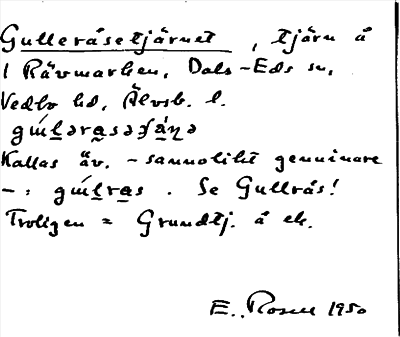 Gulleråsetjärnet, tjärn å
1 Rävmarken, Dals-Eds sn,
Vedbo hd, Älvsb. l.
Kallas äv. - sannolikt genuinare
Se Gullrås!
Troligen = Grundtj. å ek.
E. Rosell 1950